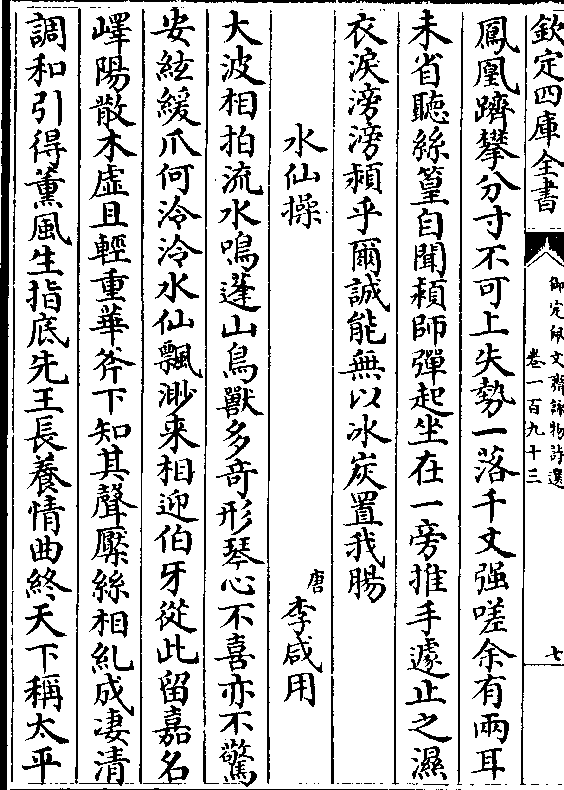 欽定四庫全書
御定佩文齋詠物詩選
卷一百九十三
七
鳳凰躋攀分寸不可上失勢一落千丈强嗟余有兩耳
未省聽絲篁自聞穎師彈起坐在一旁推手遽止之濕
衣淚滂滂穎乎爾誠能無以冰炭置我腸
水仙操
唐李咸用
大波相拍流水鳴蓬山鳥獸多竒形琴心不喜亦不驚
安絃緩爪何泠泠水仙飄渺来相迎伯牙從此留嘉名
嶧陽散木虛且輕重華斧下知其聲㡻絲相糺成凄清
調和引得薰風生指底先王長養情曲終天下稱太平